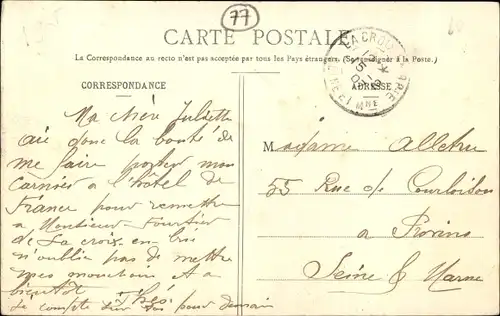 77
CARTE POSTALE
La Correspondance au recto n'est pas acceptée par tous les Pays étrangers. (Se renseigner à la Poste.)
CORRESPONDANCE
ADRESSE
LA CROIX
Ma chère Juliette
aie donc la bonté de
me faire porter mon
carnier a l'hôtel de
France pour remettre
a Monsieur Fournier
de La croix en brie
n'oublie pas de mettre
mes A a
bientôt
Je compte sur pour demain
Madame
55 Rue de Courloison
a Provins
Seine & Marne